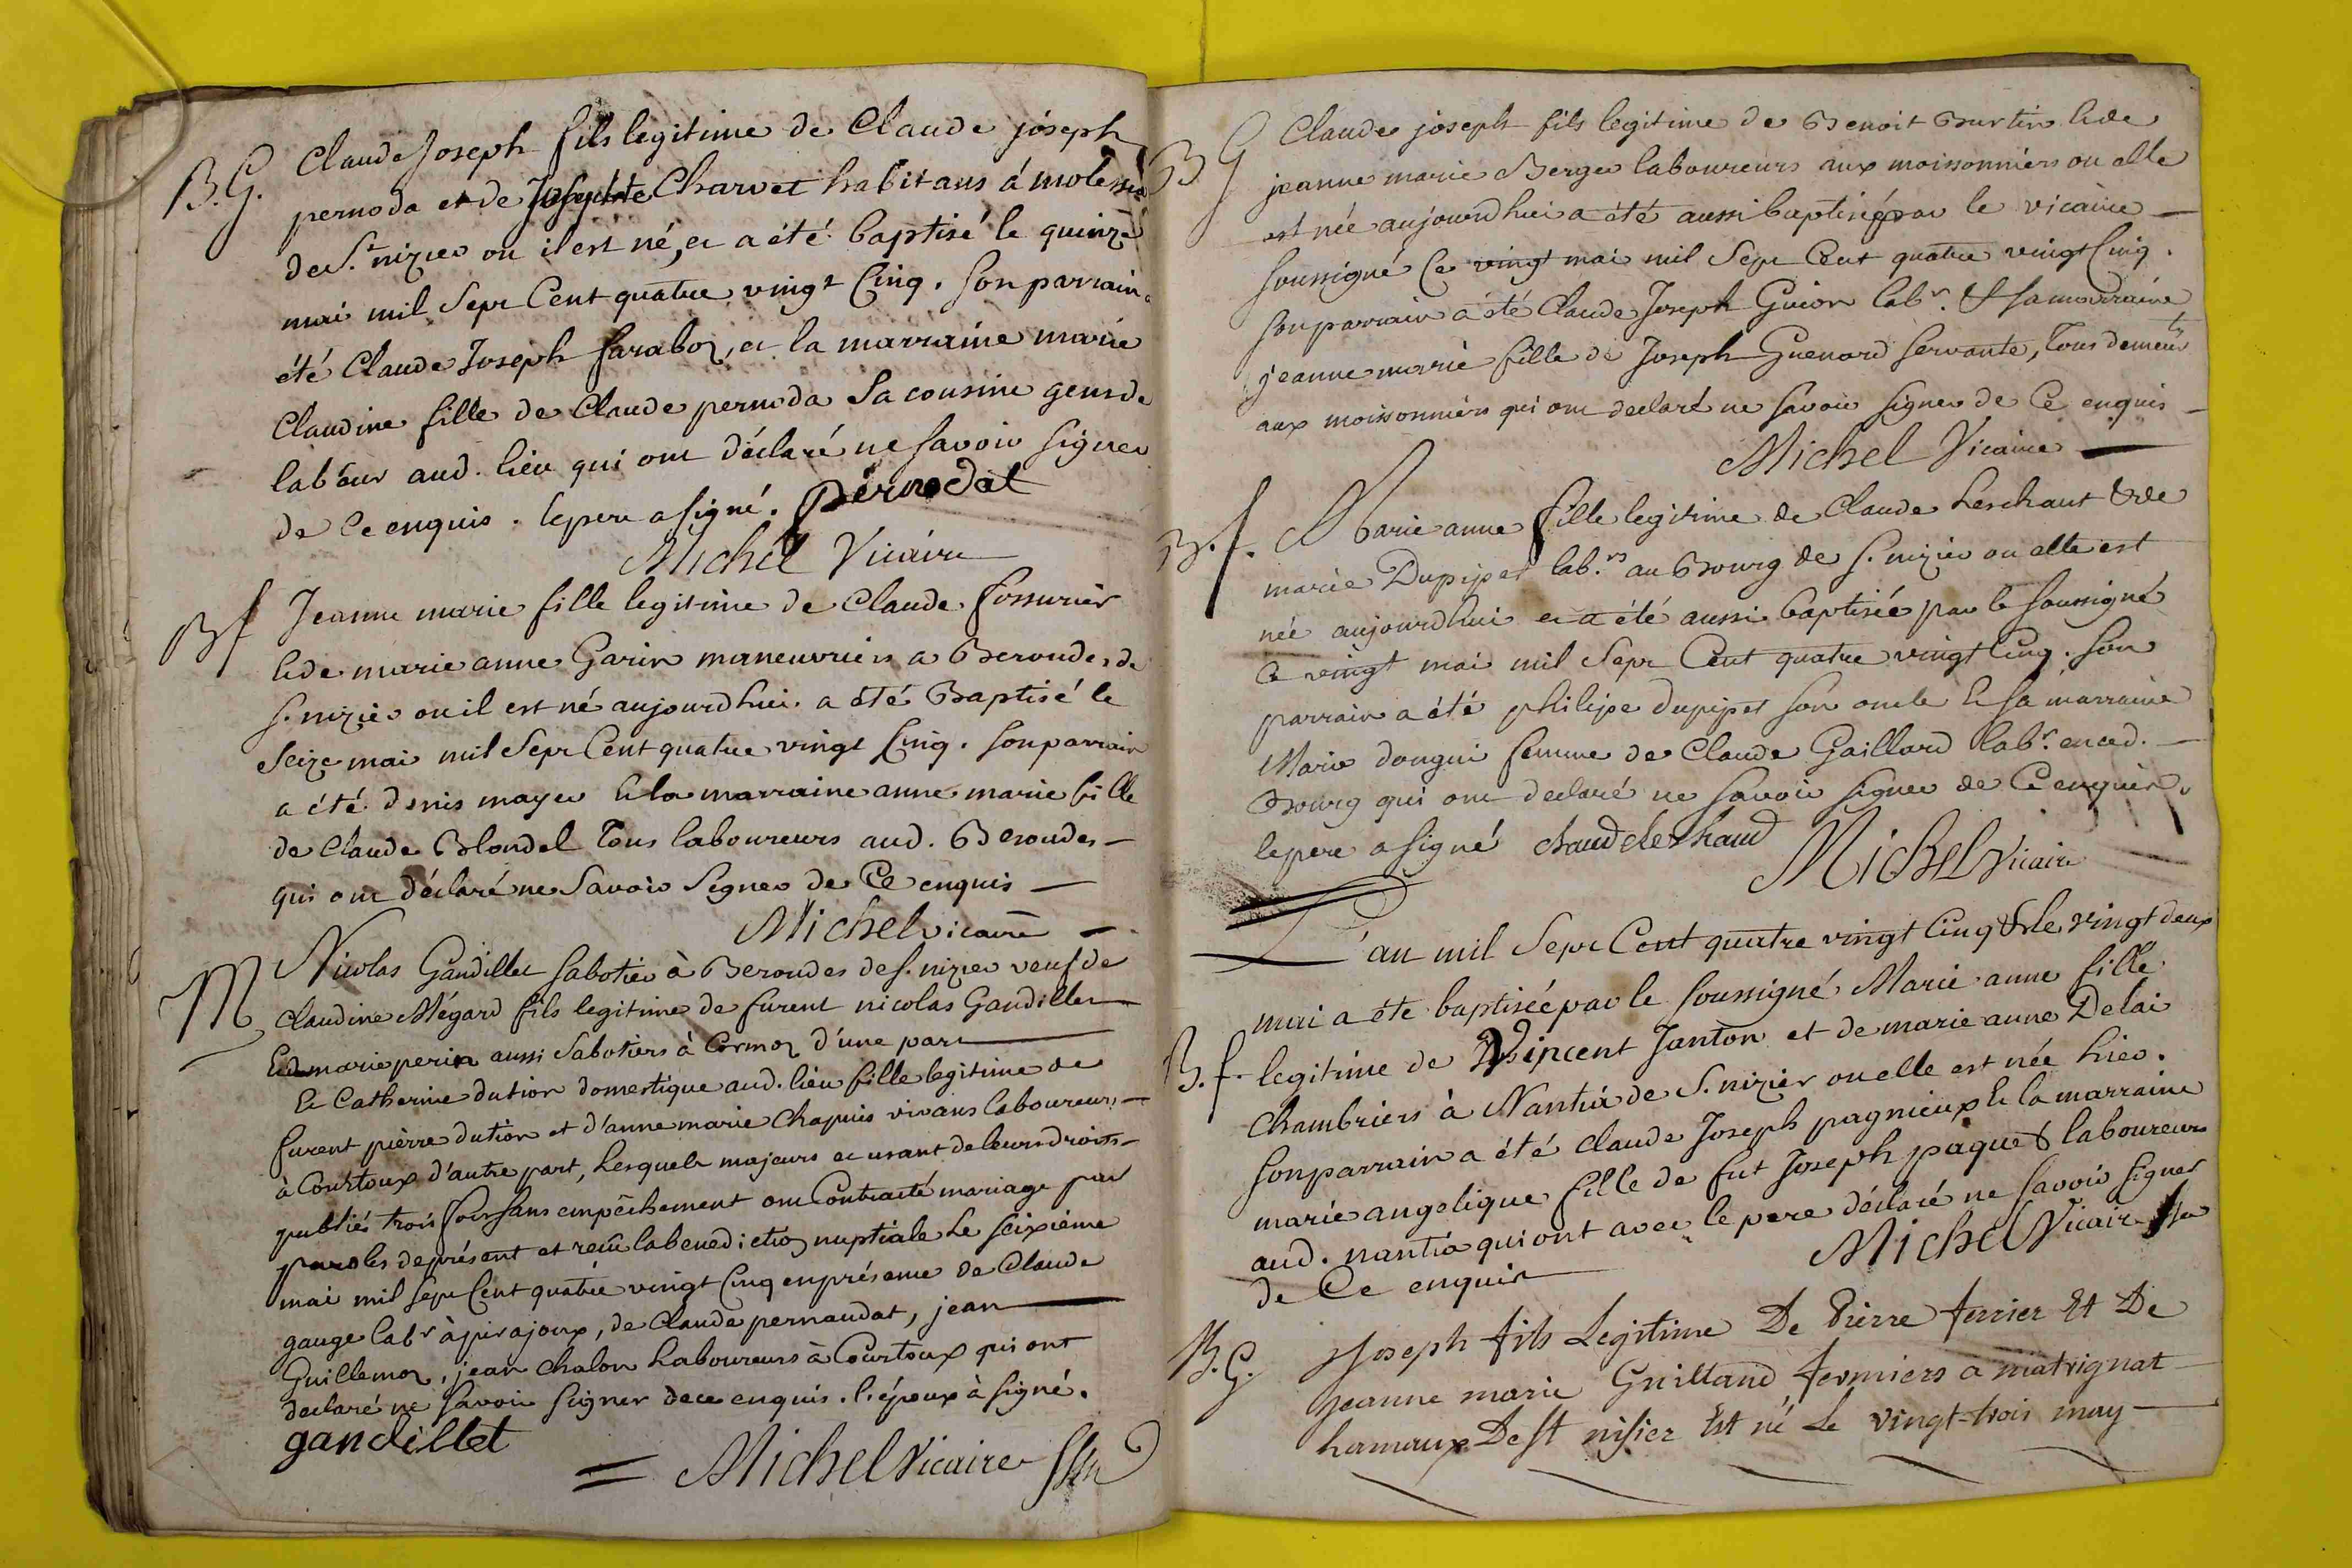 B.G. Claude Joseph fils legitime de Claude joseph
pernoda et de Charvet habitans á
de St. nizier ou il est né, et a été baptisé le quinze
mai mil Sept Cent quatre vingt Cinq. son parrain a
été Claude Joseph faraboz, et la marraine marie
Claudine fille de Claude pernoda Sa cousine gens de
labour aud. lieu qui ont déclaré ne savoir signer
de Ce enquis. le pere a signé. Pernodat
Michel Vicaire
Bf Jeanne marie fille legitime de Claude
& de marie anne Garin maneuvriers a Beroudes de
S. nizier ou il est né aujourdhui a été Baptisé le
Seize mai mil Sept Cent quatre vingt Cinq. son parrain
a été denis mayer & la marraine anne marie fille
de Claude Blondel tous laboureurs aud. Beroudes —
qui ont déclaré ne Savoir Signer de Ce enquis —
Michel vicaire —
M Nicolas Gandillet sabotier à Beroudes de S. nizier veuf de
Claudine Mégard fils legitime de furent nicolas Gandillet
& de marie perin aussi Sabotiers à Cormoz d'une part
Et Catherine dution domestique aud. lieu fille legitime de
furent pièrre dution et d'anne marie Chapuis vivans laboureurs —
à Courtoux d'autre part, Lesquels majeurs et usant de leurs droits —
publiés trois fois sans empêchement ont Contracté mariage par
paroles de présent et reçu la benediction nuptiale Le seizième
mai mil sept Cent quatre vingt Cinq en présence de Claude
gauge labr à pirajoux, de Claude pernaudat, jean
Guillemoz, jean chalon Laboureurs à Courtoux qui ont
declaré ne savoir signer de ce enquis. l'époux à signé.
gandillet
= Michel Vicaire
B G Claude joseph fils legitime de Benoit Burtin & de
jeanne marie Berger laboureurs aux moissonniers ou elle
est née aujourdhui a été aussi baptisé par le vicaire —
soussigné Ce vingt mai mil Sept Cent quatre vingt Cinq.
son parrain a été Claude Joseph Guion labr. & sa marraine
jeanne marie fille de Joseph Guenard servante, tous demeurts
aux moissonniers qui ont declaré ne sávoir signer de Ce enquis —
Michel Vicaire —
B.f. Marie anne fille legitime de Claude Lerchaut & de
marie Dupipet lab.rs au Bourg de S. nizier ou elle est
née aujourdhui et a été aussi baptisée par le soussigné
Ce vingt mai mil Sept Cent quatre vingt Cinq. son
parrain a été philipe dupipet son oncle & sa marraine
Marie dongui femme de Claude Gaillard labr. en ced. —
Bourg qui ont declaré ne savoir signer de Ce enquis.
le pere a signé
Michel Vicaire
L'an mil Sept Cent quatre vingt Cinq & le vingt deux
mai a été baptisée par le soussigné Marie anne fille
B.f. legitime de Vincent Janton et de marie anne Delai
Chambriers à Nantia de S. nizier ou elle est née hier.
son parrain a été Claude Joseph pagnieux & la marraine
marie angelique fille de fut Joseph paquet laboureurs
aud. nantia qui ont avec le pere déclaré ne savoir signer
de Ce enquis Michel Vicaire
B.G. Joseph fils Legitime De Pierre ferrier Et De
jeanne marie Guilland fermiers a matrignat
hamaux De St nisier Est né Le vingt-trois may